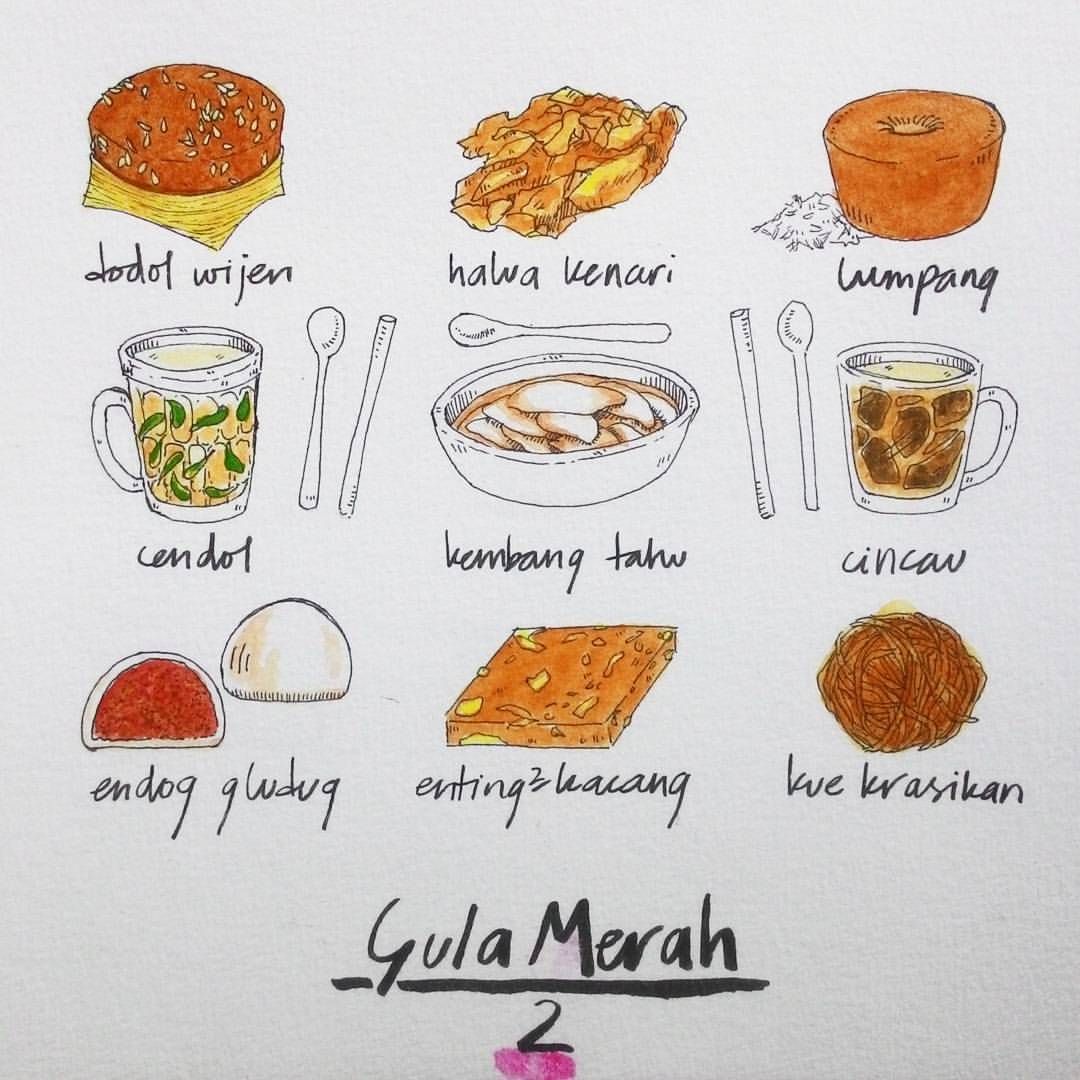 dodol wijen
halwa kenari
lumpang
cendol
kembang tahu
cincau
endog gludug
enting² kacang
kue krasikan
Gula Merah
2